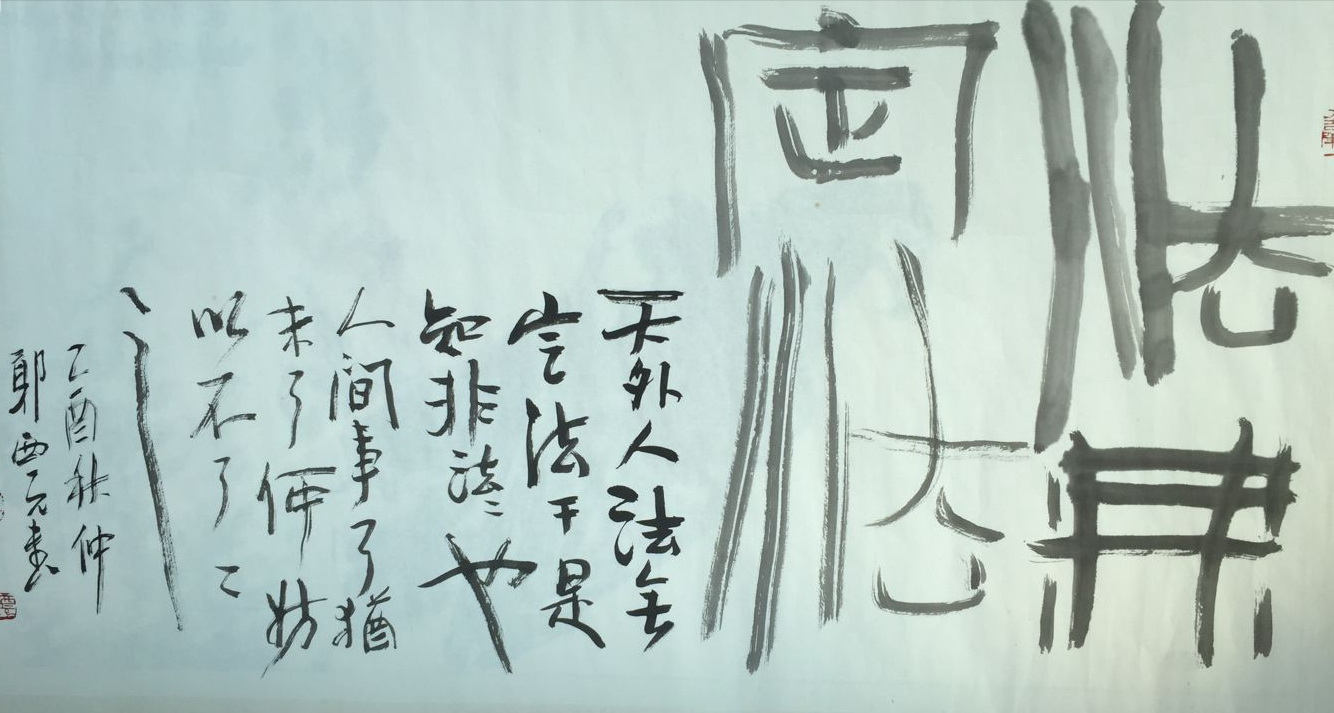 法無
定法
天外人法无
定法于是
知非法〻也
人间事了猶
未了何妨
以不了〻
之
乙酉秋仲
郭西元書